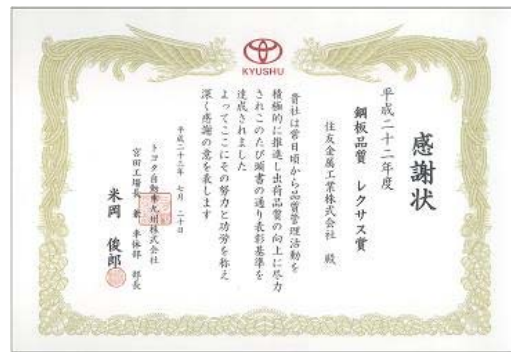 KYUSHU
感謝状
平成二十二年度
鋼板品質 レクサス賞
住友金属工業株式会社 殿
貴社は常日頃から品質管理活動を
積極的に推進し出荷品質の向上に尽力
されこのたび頭書の通り表彰基準を
達成されました
よってここにその努力と功労を称え
深く感謝の意を表します
平成二十三年 七月 二十日
トヨタ自動車九州株式会社
宮田工場長 兼 車体部 部長
米岡 俊郎